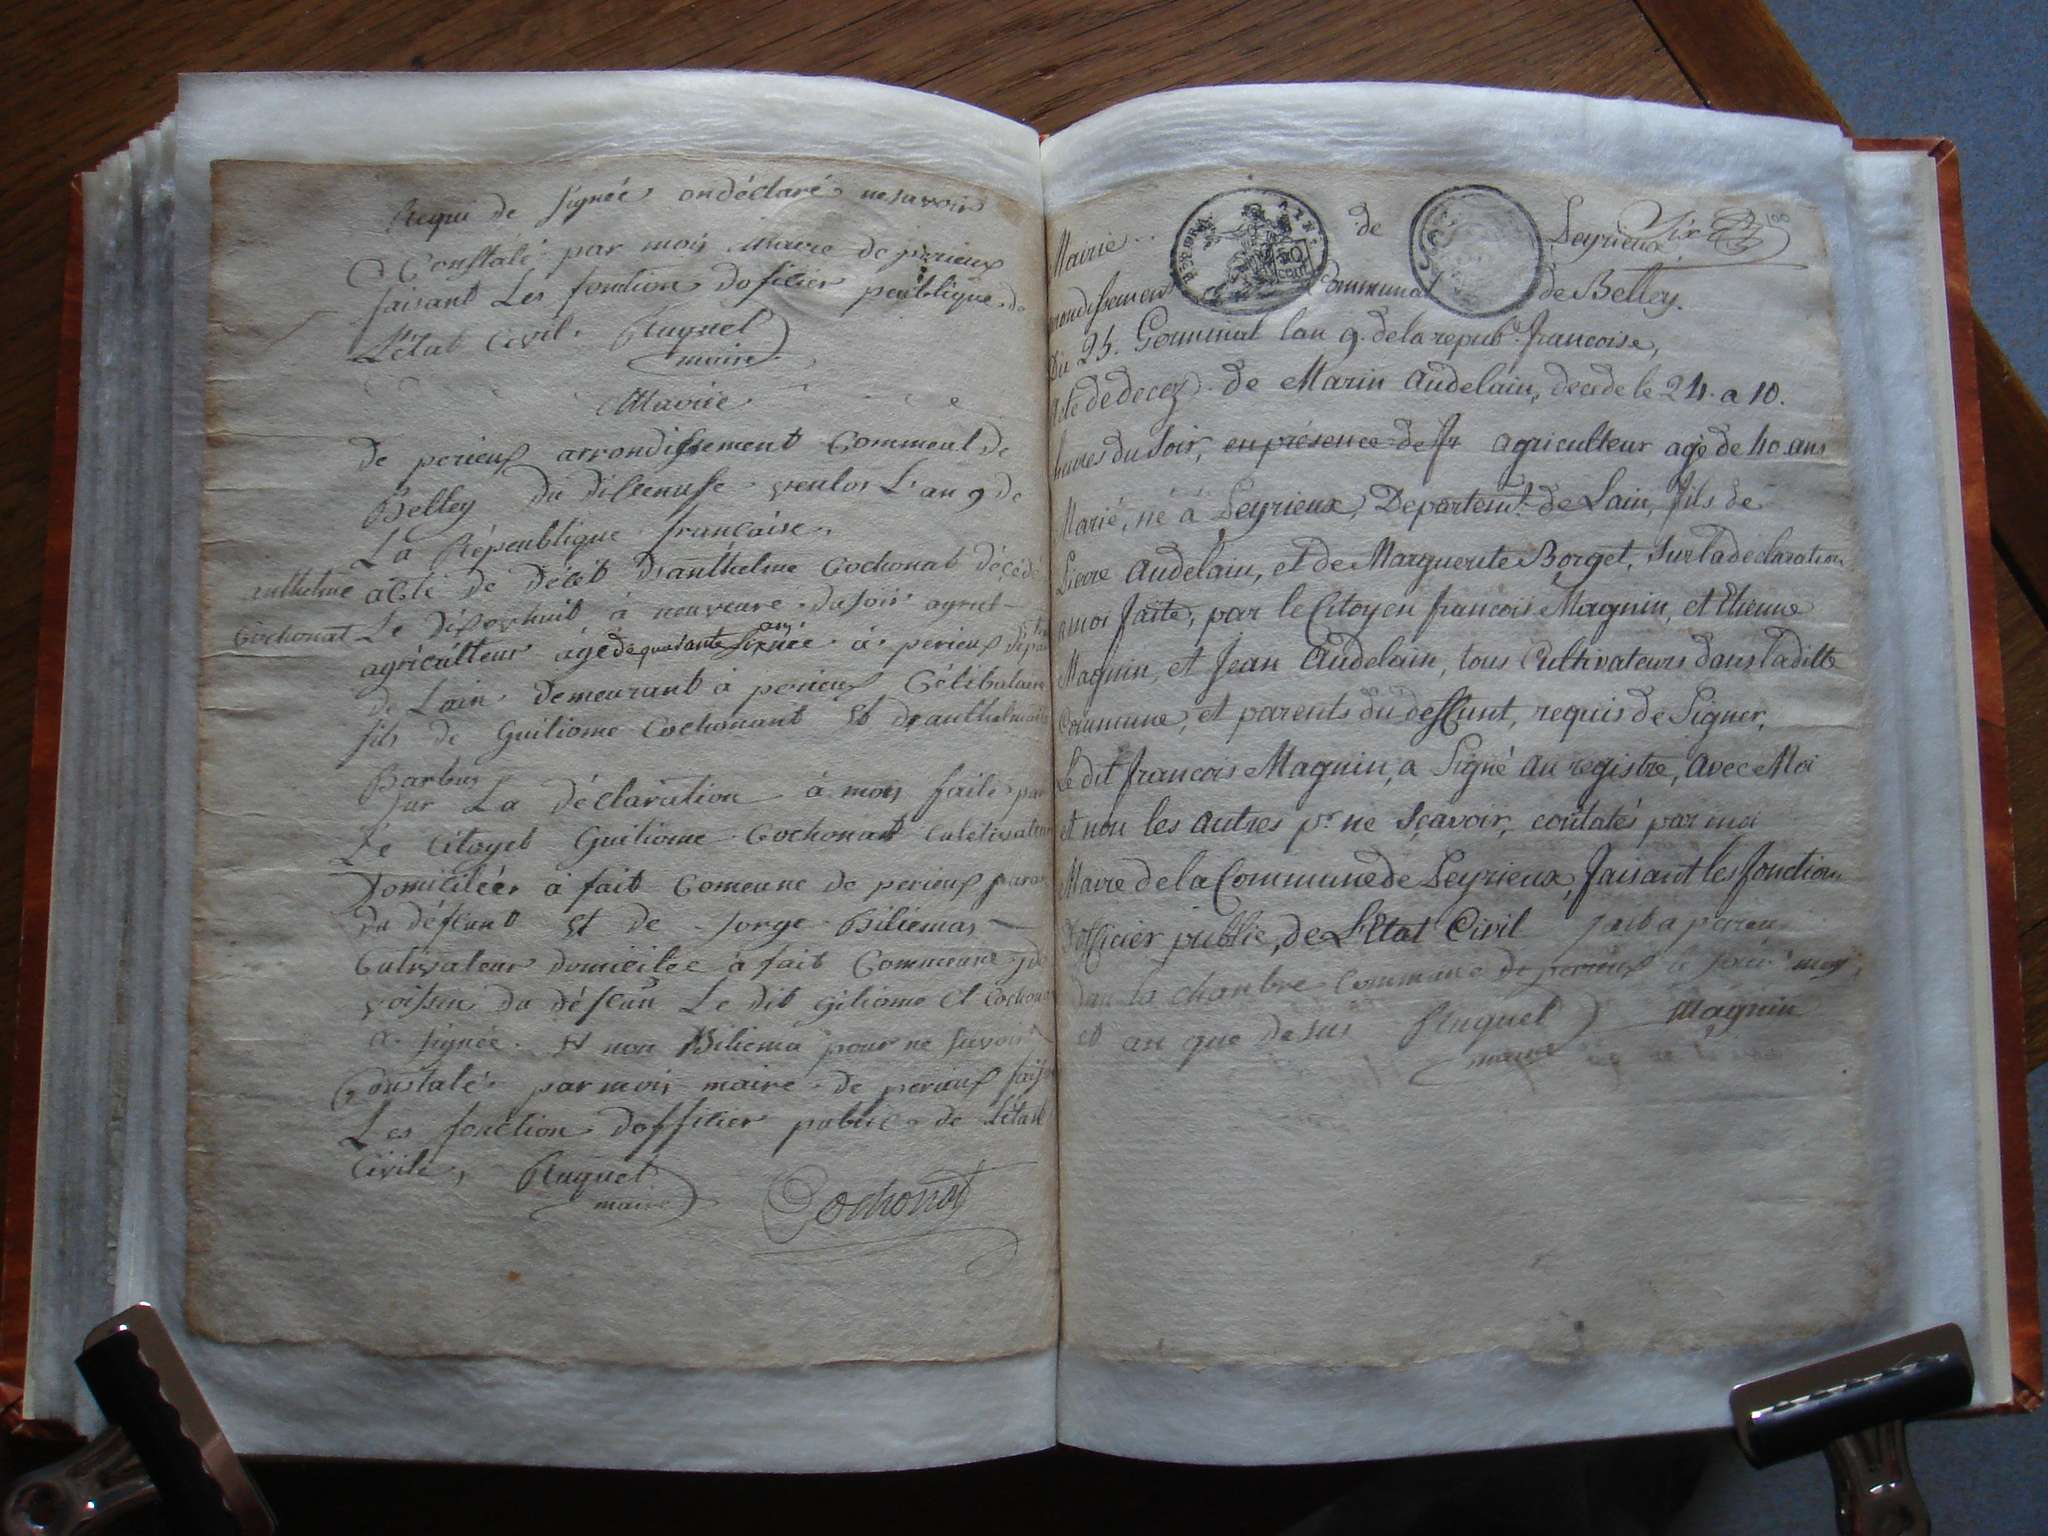 Requi de signée ondéclaré nesavoir
Constaté par mois Maire de perieux
faisant Les fonction dofisier peublique de
L'état Civil. Ruquet
maire
Mairie
de perieux arrondissement Communl de
Belley du diseneufe ventos L'an 9 de
La Républiique francaise,
anthelme acte de décét d'anthelme Cochonat décédé
Cochonat Le disevhuit à neuveure du soir agricul
agriculteur âgé de quarante six née à perieux
ans
de Lain demeurant à perieux Célibataire
fils de Guiliome Cochonant Et de anthelmaite
Barbus
sur La déclaration à mois faite par
Le citoyet Guiliome Cochonat Culstivateur
Domiciléer à fait Comeune de perieux
du défeunt Et de Jorge Biliemas
Cultivateur domicilée à fait Commeune
voissin du défeun Le dit giliome Et Cochonat
a signée Et non Biliema pour ne savoir
Constaté par mois maire de perieux
Les fonction doffisier public de Létat
Civile, Ruquet
maire Cochonat
Mairie de Peyrieux Six 100
arrondissement Communal de Belley.
Du 25. Germinal lan 9. de la repub.e francoise,
Acte de decez de Marin Audelain, decede le 24. a 10.
heures du soir, en présence de fr agriculteur agé de 40 ans
Marié, né à Peyrieux, Departem.t de Lain, fils de
Pierre Audelain, et de Marguerite Borget, sur la declaration
a moi faite, par le Citoyen francois Magnin, et Etienne
Magnin, et Jean Audelain, tous Cultivateurs dans la ditte
Commune, et parents du deffunt, requis de Signer,
Le dit francois Magnin, a Signé au registre, avec Moi
et non les autres p.r ne sçavoir, contatés par moi
Maire de la Commune de Peyrieux, faisant les fonctions
D'officier public, de L'Etat Civil fait a perieux
dan la chambre Commune de perieux le jour mois
et an que desus Ruquet Magnin
maire